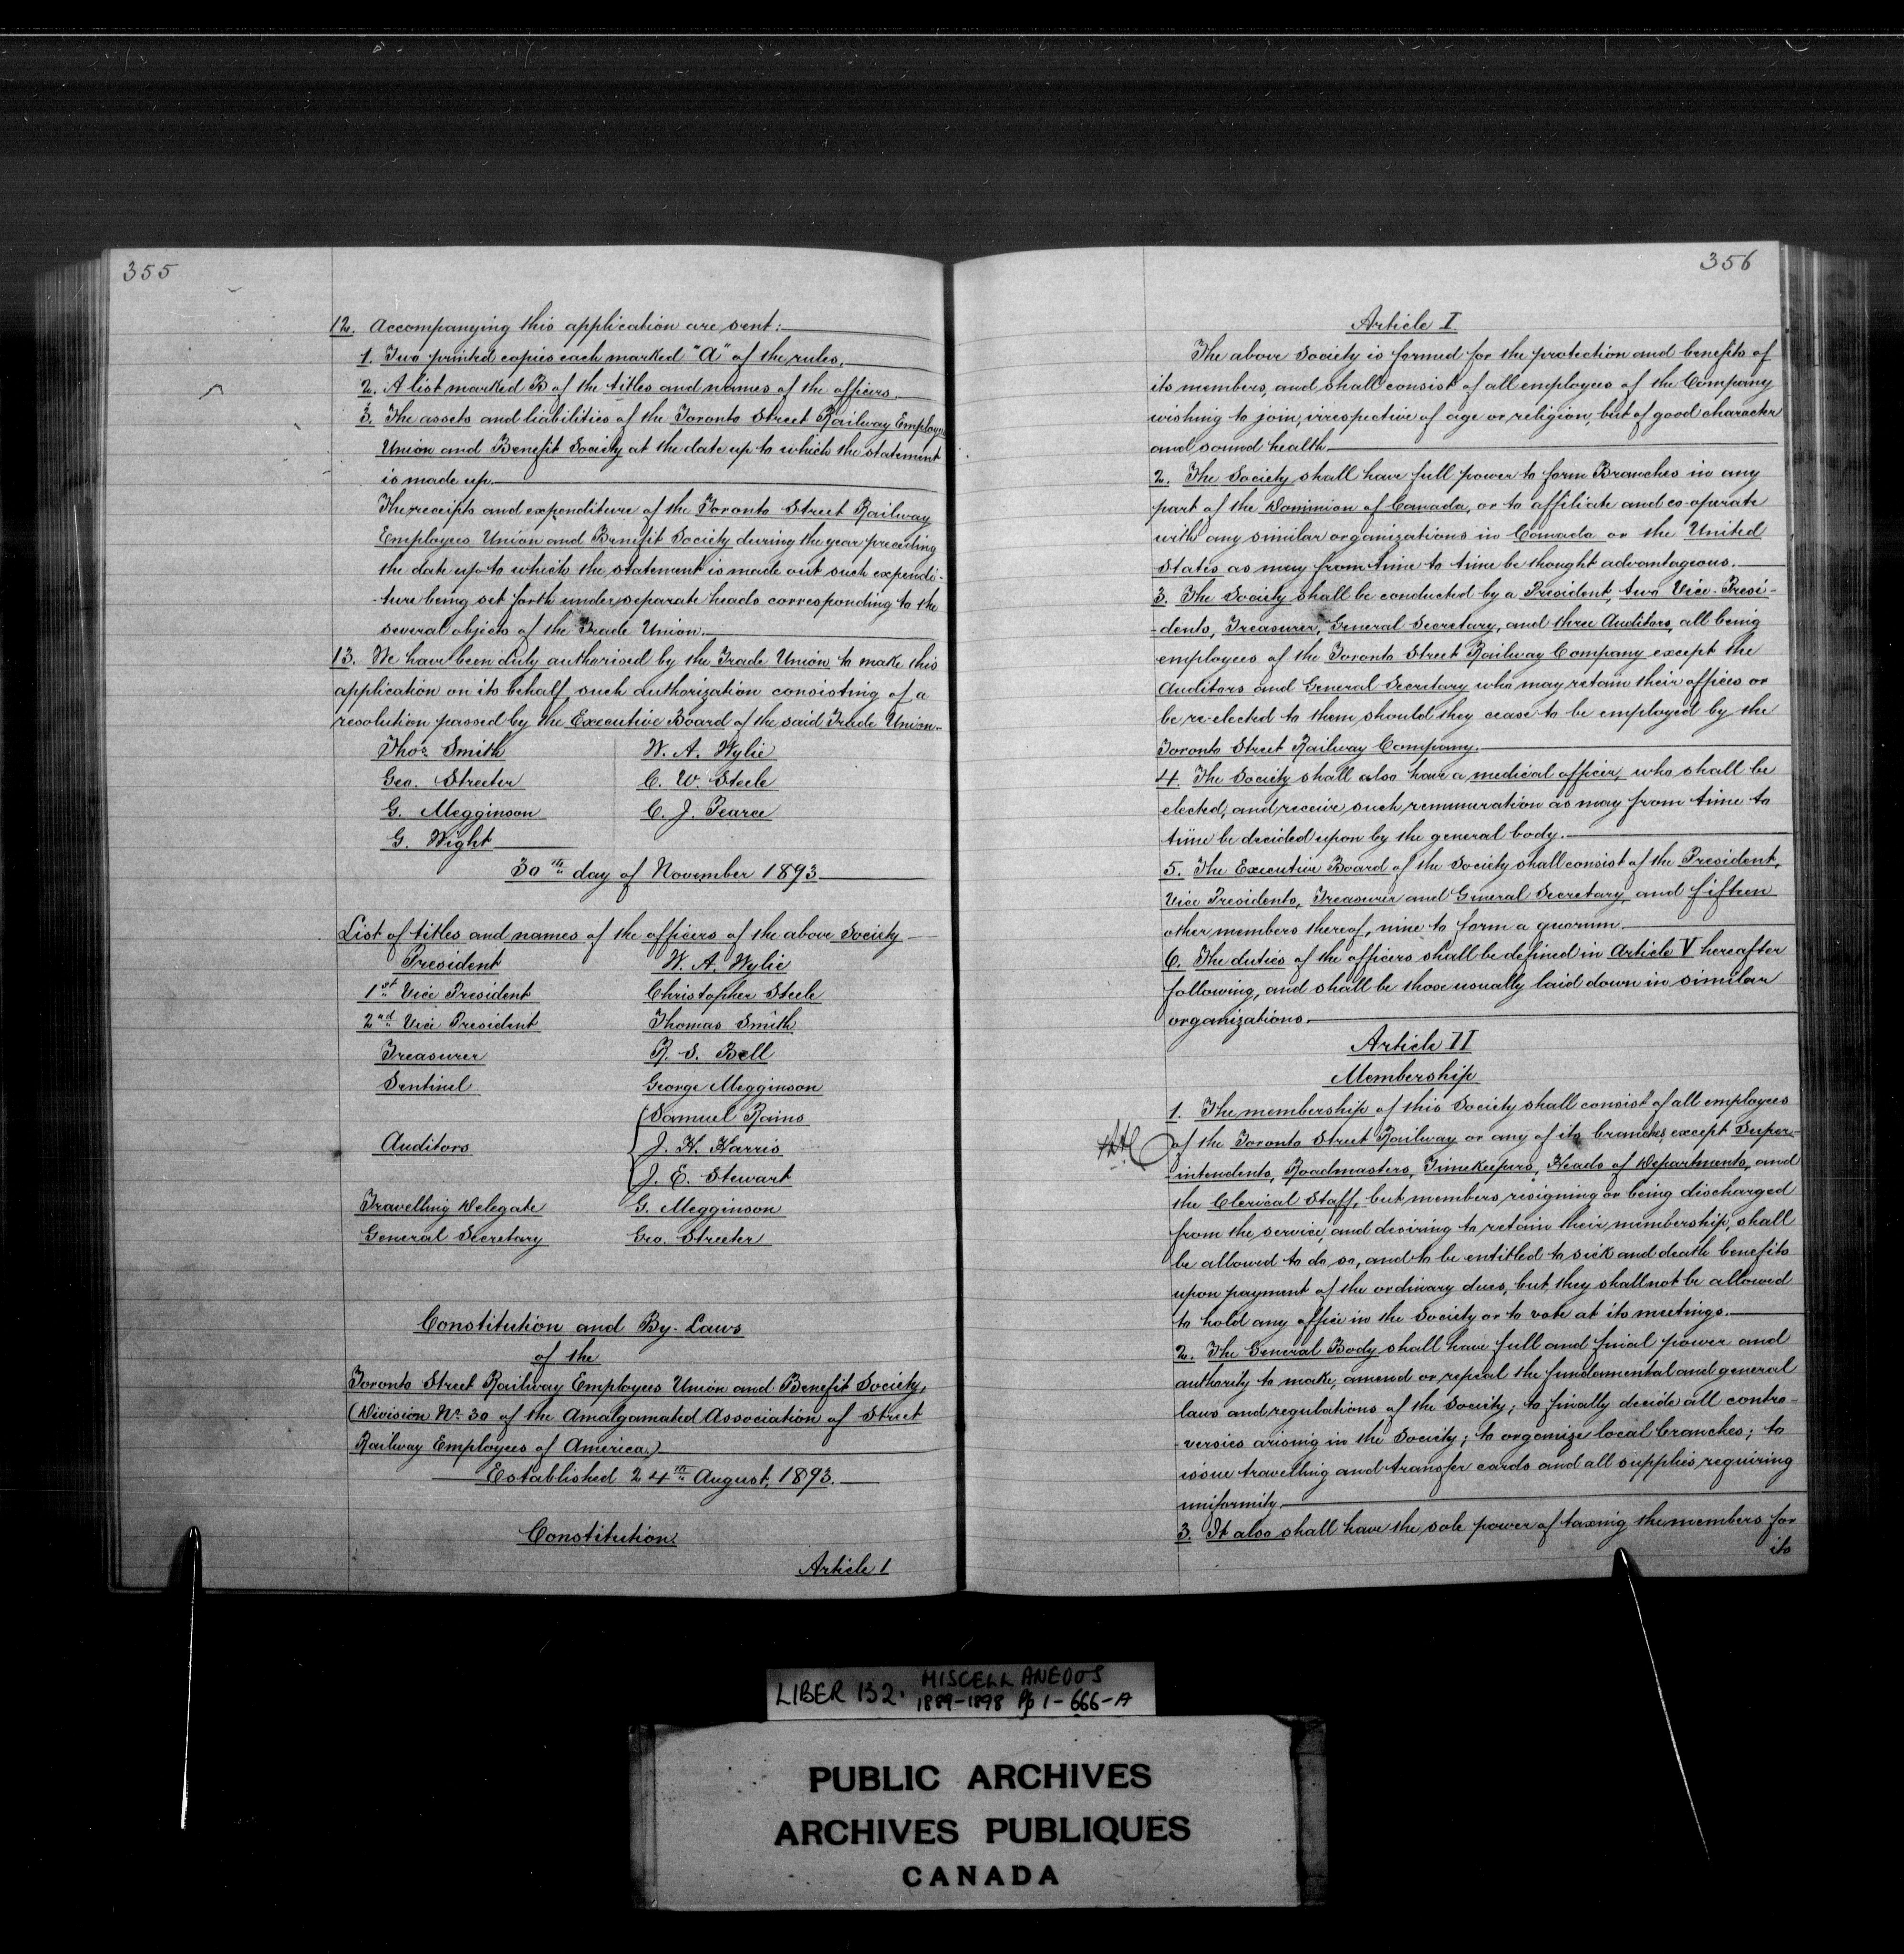 355
12. Accompanying this application are sent:
1. Two printed copies each marked "A" of the rules.
2. A list marked B of the titles and names of the officers.
3. The assets and liabilities of the Toronto Street Railway Employees
Union and Benefit Society at the date up to which the statement
is made up.
The receipts and expenditure of the Toronto Street Railway
Employees Union and Benefit Society during the year preceding
the date up to which the statement is made out such expendi-
-ture being set forth under separate heads corresponding to the
several objects of the Trade Union.
13. We have been duly authorised by the Trade Union to make this
application on its behalf such authorization consisting of a
resolution passed by the Executive Board of the said Trade Union.
Thos. Smith W. A. Wylie
Geo. Streeter C. W. Steele
G. Megginson C. J. Pearce
G. Wight
30th day of November 1893
List of titles and names of the officers of the above Society
President W. A. Wylie
1st Vice President Christopher Steele
2nd Vice President Thomas Smith
Treasurer R. S. Bell
Sentinel George Megginson
Samuel Rains
Auditors J. H. Harris
J. E. Stewart
Travelling Delegate G. Megginson
General Secretary Geo. Streeter
Constitution and By-Laws
of the
Toronto Street Railway Employees Union and Benefit Society,
(Division No. 30 of the Amalgamated Association of Street
Railway Employees of America.)
Established 24th August, 1893.
Constitution.
Article 1
356
Article I
The above Society is formed for the protection and benefits of
its members, and shall consist of all employees of the Company
wishing to join, irrespective of age or religion, but of good character
and sound health
2. The Society shall have full power to form Branches in any
part of the Dominion of Canada, or to affiliate and co-operate
with any similar organizations in Canada or the United
States as may from time to time be thought advantageous.
3. The Society shall be conducted by a President, two Vice-Presi-
-dents, Treasurer, General Secretary, and three Auditors, all being
employees of the Toronto Street Railway Company except the
Auditors and General Secretary who may retain their offices or
be re-elected to them should they cease to be employed by the
Toronto Street Railway Company.
4. The Society shall also have a medical officer, who shall be
elected, and receive such remuneration as may from time to
time be decided upon by the general body.
5. The Executive Board of the Society shall consist of the President,
Vice Presidents, Treasurer and General Secretary, and fifteen
other members thereof, nine to form a quorum.
6. The duties of the officers shall be defined in Article V hereafter
following, and shall be those usually laid down in similar
organizations.
Article II
Membership
1. The membership of this Society shall consist of all employees
of the Toronto Street Railway or any of its branches, except Super-
-intendents, Roadmasters, Timekeepers, Heads of Departments, and
the Clerical Staff, but members resigning or being discharged
from the service, and desiring to retain their membership, shall
be allowed to do so, and to be entitled to sick and death benefits
upon payment of the ordinary dues, but they shall not be allowed
to hold any office in the Society or to vote at its meetings.
2. The General Body shall have full and final power and
authority to make, amend or repeal the fundamental and general
laws and regulations of the Society; to finally decide all contro-
-versies arising in the Society; to organize local branches; to
issue travelling and transfer cards and all supplies requiring
uniformity.
3. It also shall have the sole power of taxing the members for
its
LIBER 132. MISCELLANEOUS
1889-1898 Pp 1-666-A
PUBLIC ARCHIVES
ARCHIVES PUBLIQUES
CANADA